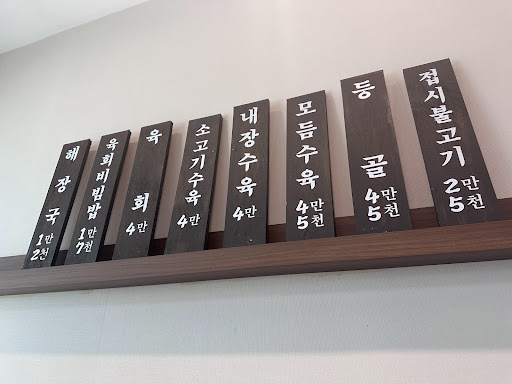 해장국 1만 2천
육회비빔밥 1만 7천
육회 4만
소고기수육 4만
내장수육 4만
모듬수육 4만 5천
등골 4만 5천
접시불고기 2만 5천